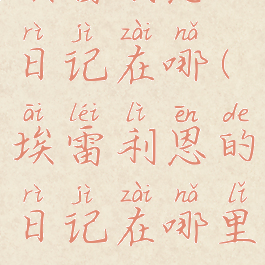 rì jì zài nǎ
日记在哪(
āi léi lì ēn de
埃雷利恩的
rì jì zài nǎ lǐ
日记在哪里